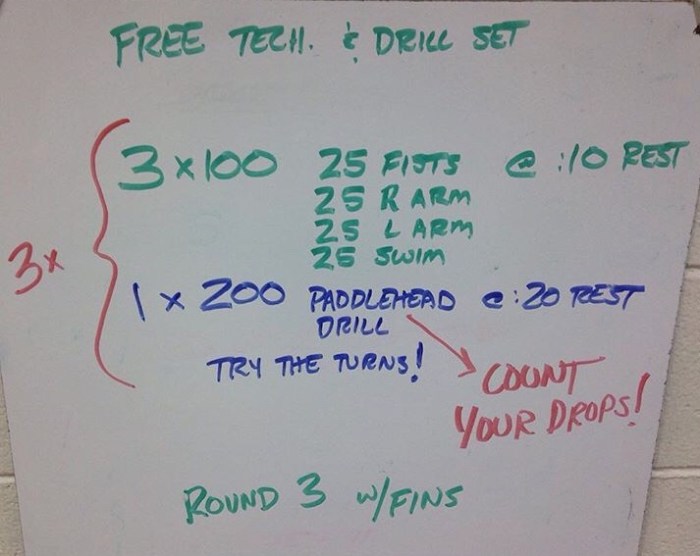 FREE TECH. & DRILL SET
3 x 100 25 FISTS @ :10 REST
25 R ARM
25 L ARM
25 SWIM
3x
1 x 200 PADDLEHEAD @ :20 REST
DRILL
TRY THE TURNS!
COUNT
YOUR DROPS!
ROUND 3 w/FINS